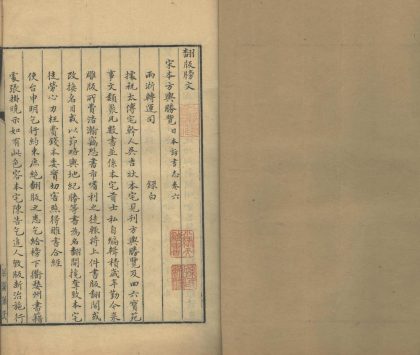 翻版牓文
宋本方輿勝覽日本訪書志卷六
兩浙轉運司　録白
據祝太傅宅幹人吳吉狀本宅見刊方輿勝覽及四六寶苑
事文類聚凡數書並係本宅貢士私自編輯積歲辛勤今來
雕版所費浩瀚竊恐書市嗜利之徒輒將上件書版翻開或
改換名目或以節略輿地紀勝等書為名翻開攙奪致本宅
徒勞心力枉費錢本委實切害照得雕書合經
使台申明乞行約束庶絶翻版之患乞給牓下衢婺州雕書籍
處張掛曉示如有此色容本宅陳告乞追人毀版斷治施行